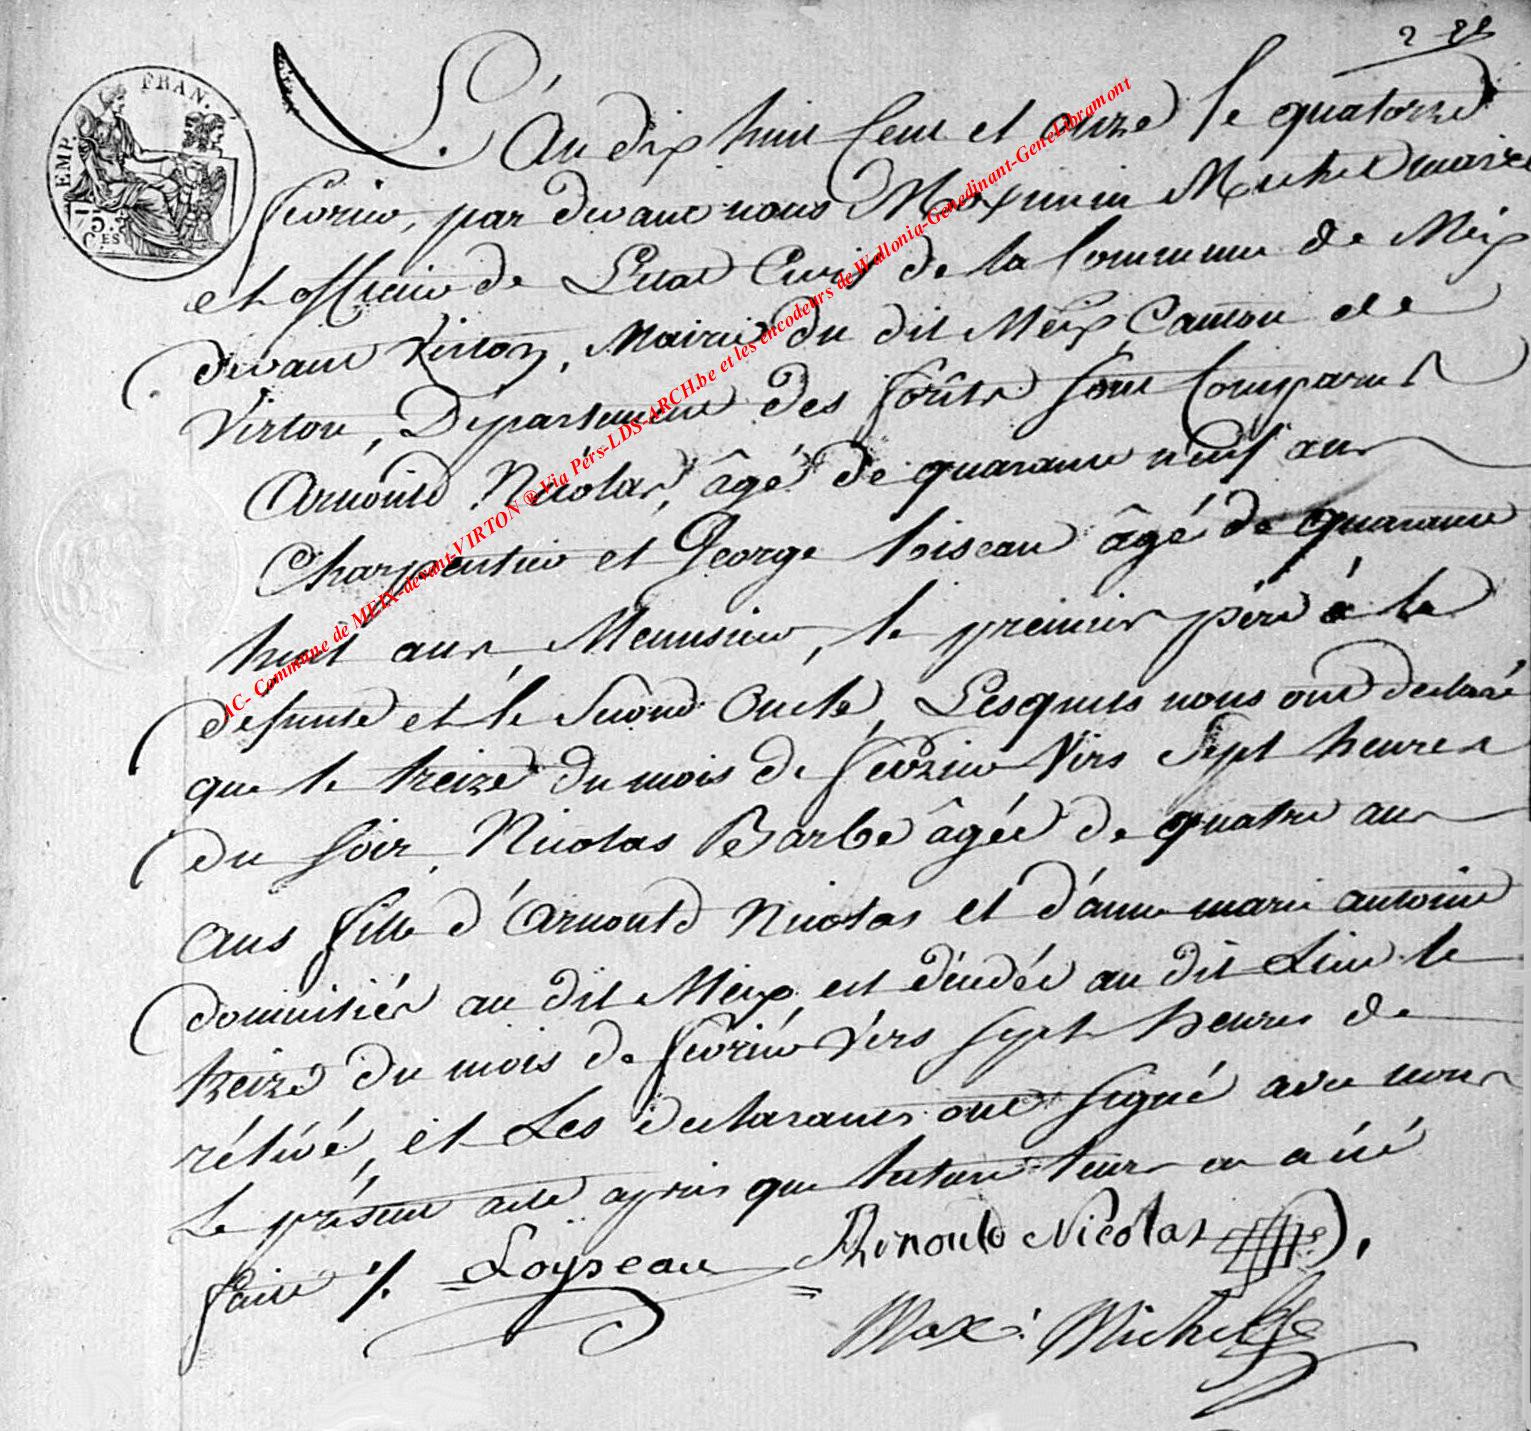 2 28
EMP. FRAN.
75
C.ES
L'An dix huit Cent et onze le quatorze
fevrier, par devant nous Maximin Michel maire
et officier de L'etat Civil de la Commune de Meix
devant Virton, Mairie du dit Meix, Canton de
Virton, Département des forêts sont Comparus
Arnould Nicolas, âgé de quarante neuf ans
Charpentier et George loiseau âgé de quarante
huit ans, Menusier, le premier pére à la
defunte et le Second Oncle, Lesquels nous ont declaré
que le treize du mois de fevrier Vers Sept heures
du soir, Nicolas Barbe âgée de quatre ans
ans fille d'Arnould Nicolas et d'anne marie antoine
domiciliés au dit Meix, est décédée au dit Lieu le
treize du mois de fevrier Vers sept heures de
rélévé, et Les declarants ont signé avec nous
Le présent acte après que lecture leur en a été
faite ./.
Loyseau
Arnould Nicolas
Max: Michel
AC- Commune de MEIX-devant-VIRTON ® Via Pers-LDS-ARCH.be et les encodeurs de Wallonia-Genedinant-GeneLibramont